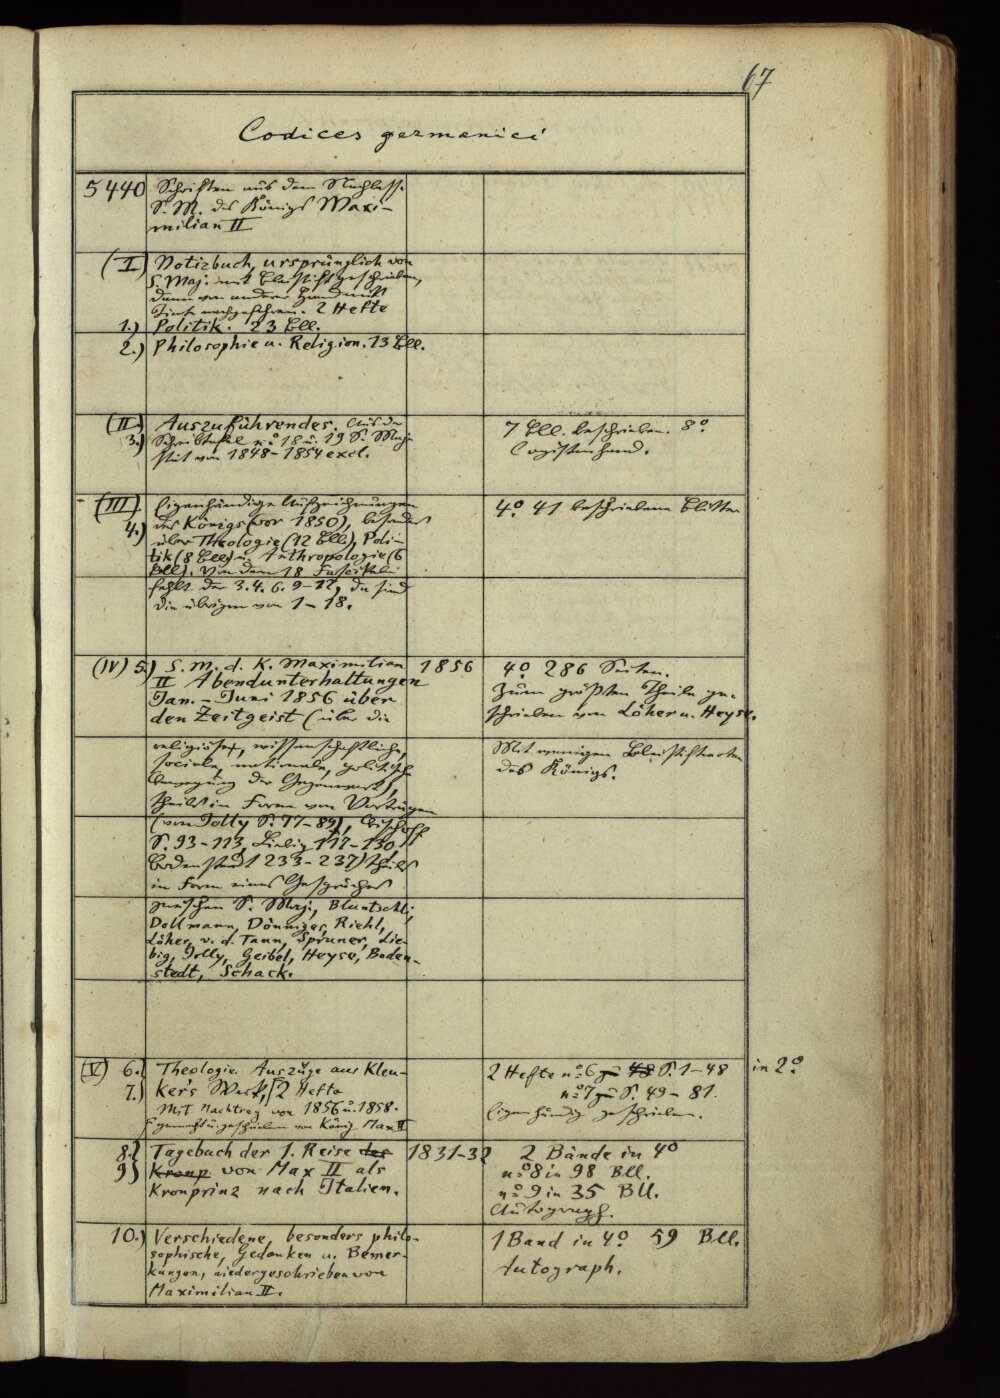 67
Codices germanici
5440 Schriften aus dem Nachlasse
S. M. des Königs Maxi-
milian II
(I) Notizbuch, ursprünglich von
S. Maj. mit Bleistift geschrieben,
dann von anderer Hand mit
Tinte nachgefahren. 2 Hefte
1.) Politik. 23 Bll.
2.) Philosophie u. Religion. 13 Bll.
(II) Auszuführendes. Aus der
3.) Schreibtafel no 18 u. 19 S. Maje-
stät von 1848-1854 excl.
7 Bll. beschrieben. 8o
Copistenhand.
(III) Eigenhändige Aufzeichnungen
4.) des Königs (vor 1850), besonders
über Theologie (12 Bll), Poli-
tik (8 Bll) u. Anthropologie (6
Bll). Von den 18 Faszikeln
fehlt der 3. 4. 6. 9-12, da sind
die übrigen von 1-18.
4o 41 beschriebene Blätter
(IV) 5.) S. M. d. K. Maximilian
II Abendunterhaltungen
Jan. - Juni 1856 über
den Zeitgeist (über die
religiöse, wissenschaftliche,
sociale, nationale, politische
Bewegung der Gegenwart),
theils in Form von Vorträgen
(von Jolly S. 77-89), Bischoff
S. 93-113, Liebig 117-130,
Bodenstedt 233-237) theils
in Form eines Gespräches
zwischen S. Maj., Bluntschli,
Dollmann, Dönniges, Riehl,
Löher, v. d. Tann, Spruner, Lie-
big, Jolly, Geibel, Heyse, Boden-
stedt, Schack.
1856
4o 286 Seiten.
Zum größten Theile ge-
schrieben von Löher u. Heyse.
Mit wenigen Bleistiftnoten
des Königs.
(V) 6.) Theologie. Auszüge aus Kleu-
7.) ker's Werk, 2 Hefte
Mit Nachtrag von 1856 u. 1858.
geschrieben von König Max II
2 Hefte no 6 zu 48 S. 1-48
no 7 zu S. 49-81.
Eigenhändig geschrieben.
in 2o
8.) Tagebuch der 1. Reise des
9.) Kronp. von Max II als
Kronprinz nach Italien.
1831-32
2 Bände in 4o
no 8 in 98 Bll.
no 9 in 35 Bll.
Autograph.
10.) Verschiedene, besonders philo-
sophische, Gedanken u. Bemer-
kungen, niedergeschrieben von
Maximilian II.
1 Band in 4o 59 Bll.
Autograph.